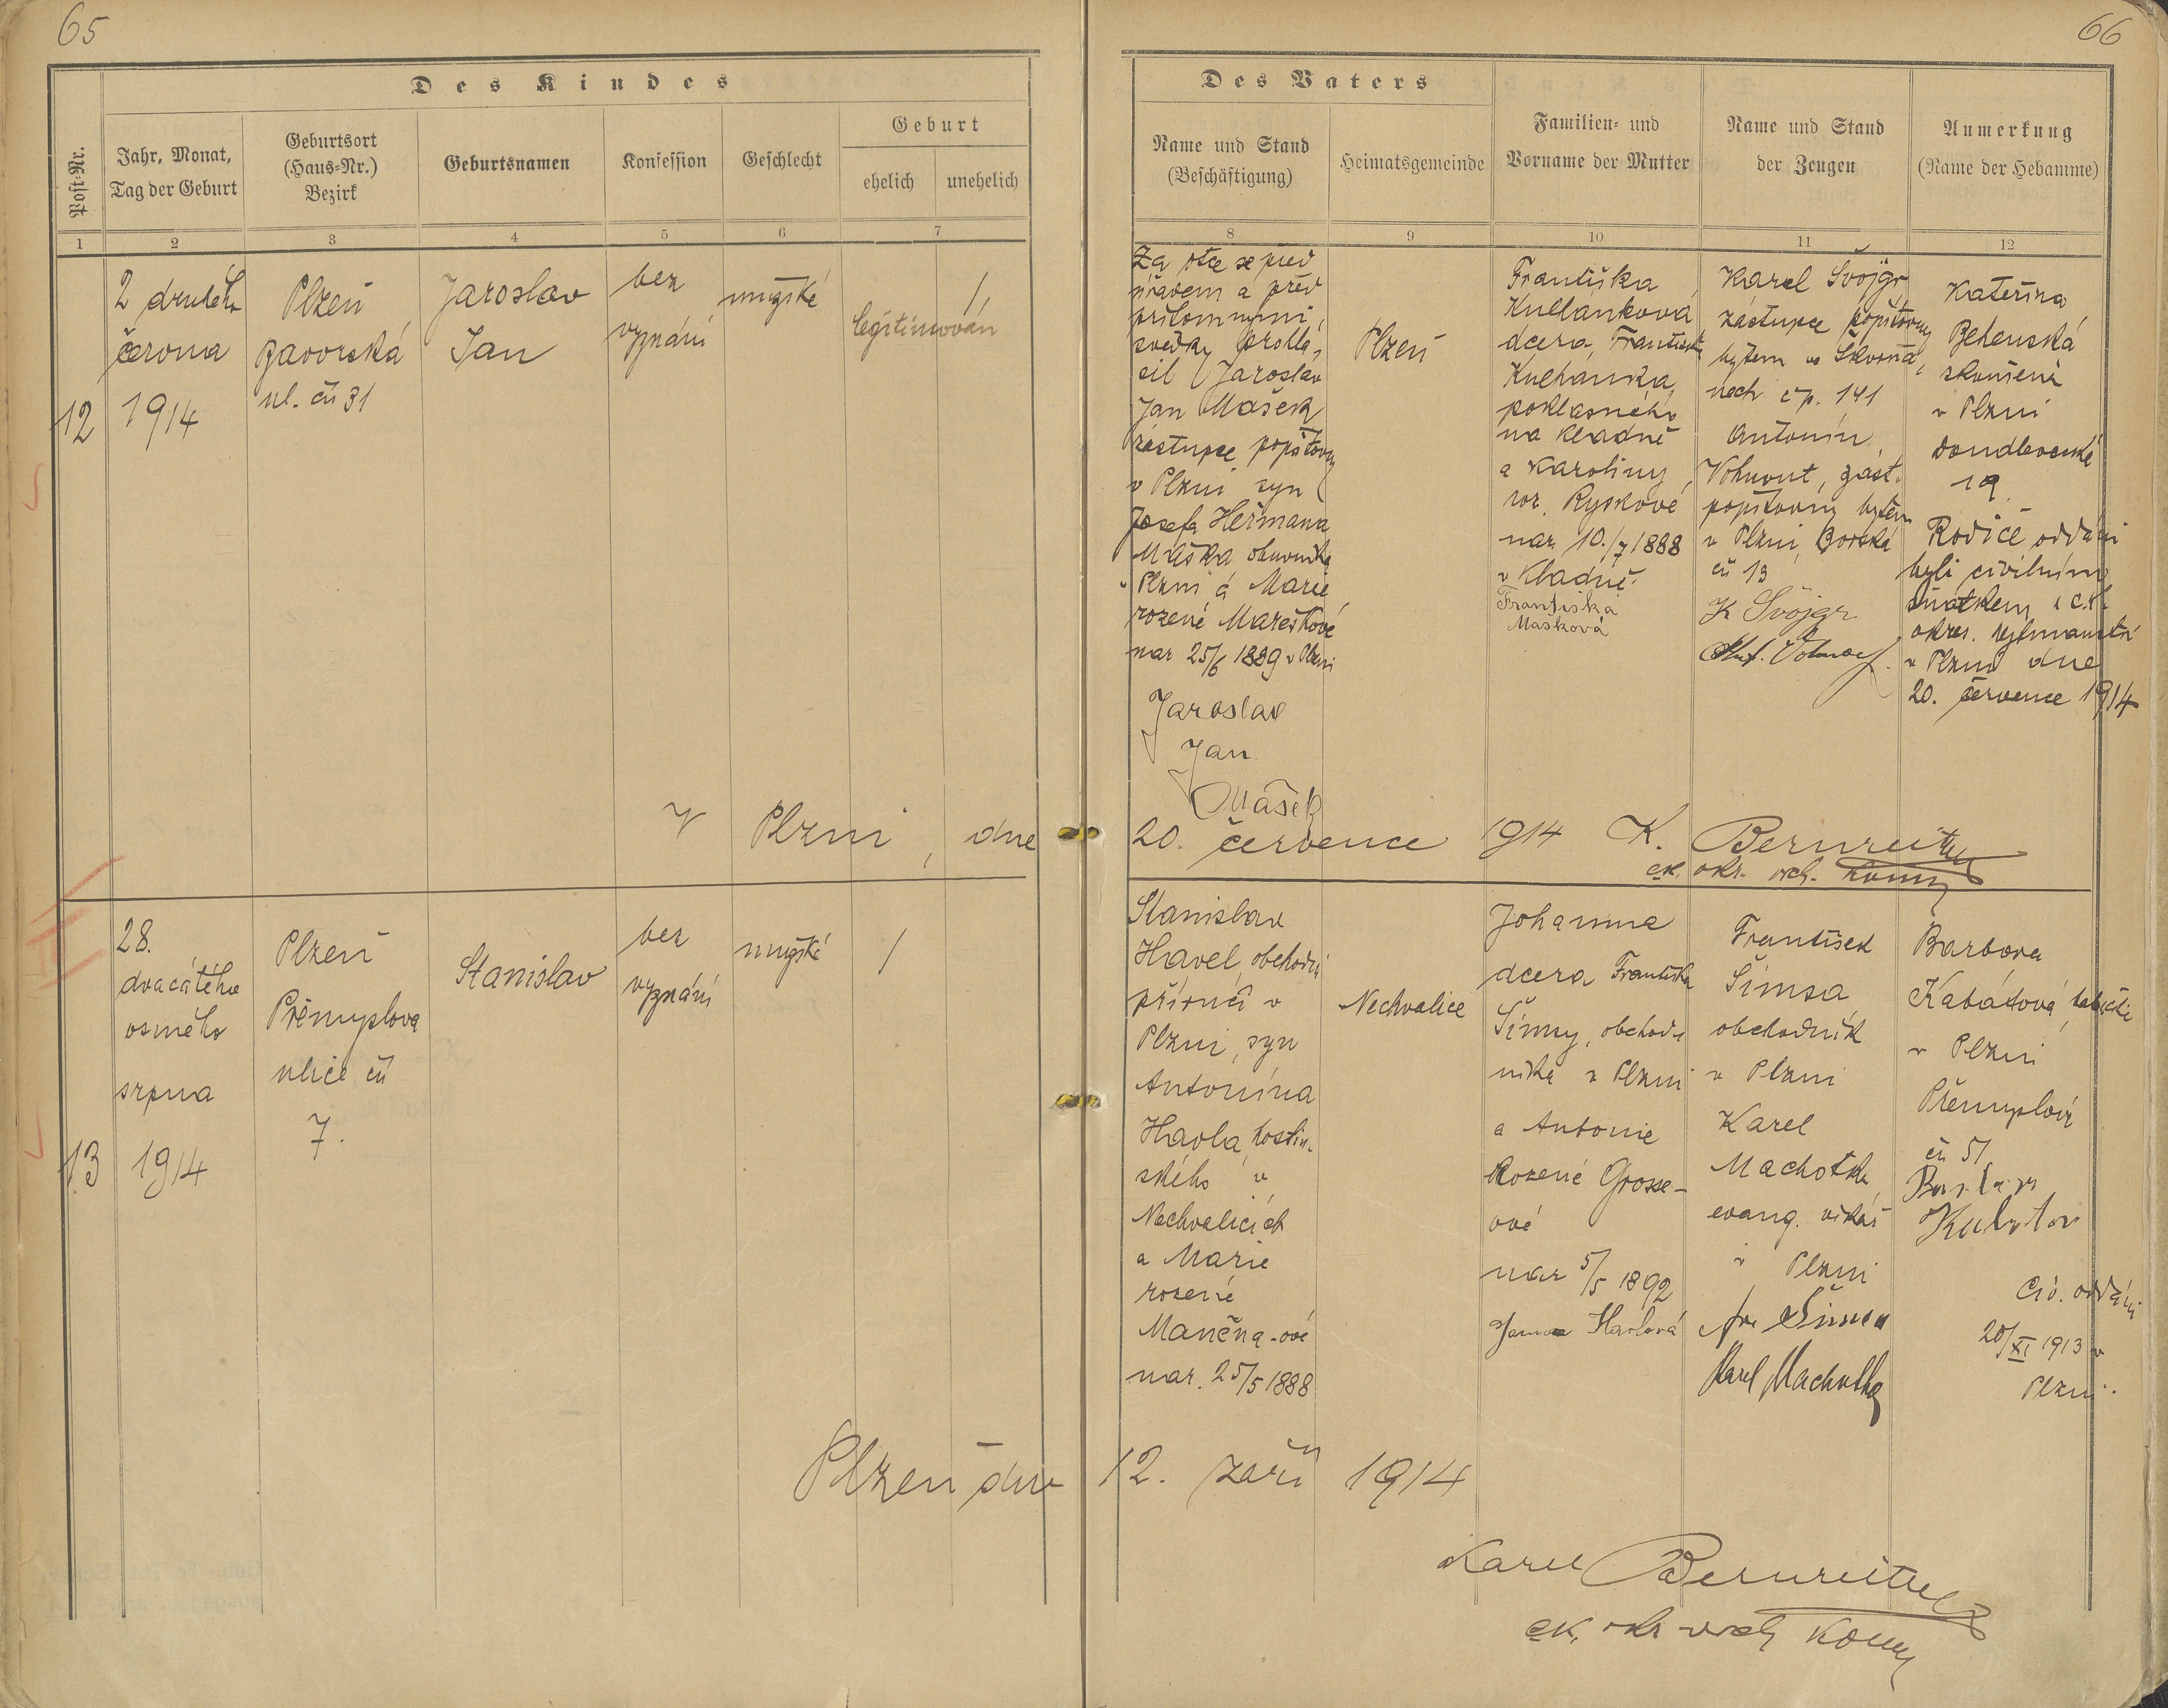 65
66
Des Kindes
Post-Nr.
Jahr, Monat,
Tag der Geburt
Geburtsort
(Haus-Nr.)
Bezirk
Geburtsnamen
Konfession
Geschlecht
Geburt
ehelich
unehelich
Des Vaters
Name und Stand
(Beschäftigung)
Heimatsgemeinde
Familien- und
Vorname der Mutter
Name und Stand
der Zeugen
Anmerkung
(Name der Hebamme)
1
2
3
4
5
6
7
8
9
10
11
12
12
2 druhého
června
1914
Plzeň
Bavorská
ul. čís 31
Jaroslav
Jan
bez
vyznání
mužské
1,
legitimován
Za otce se před
úřadem a před
přítomnými
svědky prohlá-
sil Jaroslav
Jan Mašek
zástupce pojišťovny
v Plzni syn
Josefa Heřmana
Maška obuvníka
v Plzni a Marie
rozené Marešové
nar 25/6 1889 v Plzni
Jaroslav
Jan
Mašek
Plzeň
Františka
Kulhánková
dcera Františka
Kulhánka,
na Kladně
a Karoliny
roz. Ryskové
nar. 10./7 1888
v Kladně.
Františka
Mašková
Karel Švojgr
zástupce pojišťovny
bytem ve Škvrňa-
nech č p. 141
Antonín
Vohnout, zást.
pojišťovny bytem
v Plzni, Borská
čís 13
K Švojgr
Ant.
Kateřina
zkoušená
v Plzni
Doudlevecká
19.
Rodiče oddáni
byli civilním
sňatkem u c.k.
okres. hejtmanství
v Plzni dne
20. července 1914
V Plzni, dne 20. července 1914 K. Bernreiter
ck. okr. vrch.
13
28.
dvacátého
osmého
srpna
1914
Plzeň
Přemyslova
ulice čís
7.
Stanislav
bez
vyznání
mužské
1
Stanislav
Havel, obchodní
příručí v
Plzni, syn
Antonína
Havla, hostin-
ského v
Nechvalicích
a Marie
rozené
nar. 25/5 1888
Nechvalice
Johanna
dcera Františka
Šimsy, obchod-
níka v Plzni
a Antonie
Rozené Grosse-
ové
nar 5/5 1892
Havlová
František
Šimsa
obchodník
v Plzni
Karel
Machotka
evang. vikář
v Plzni
Fr. Šimsa
Karel Machotka
Barbora
Kabátová, babička
v Plzni
Přemyslova
čís 51
Civ. oddáni
20/XI 1913 v
Plzni.
Plzeň dne 12. září 1914
Karel Bernreiter
ck. okr vrch